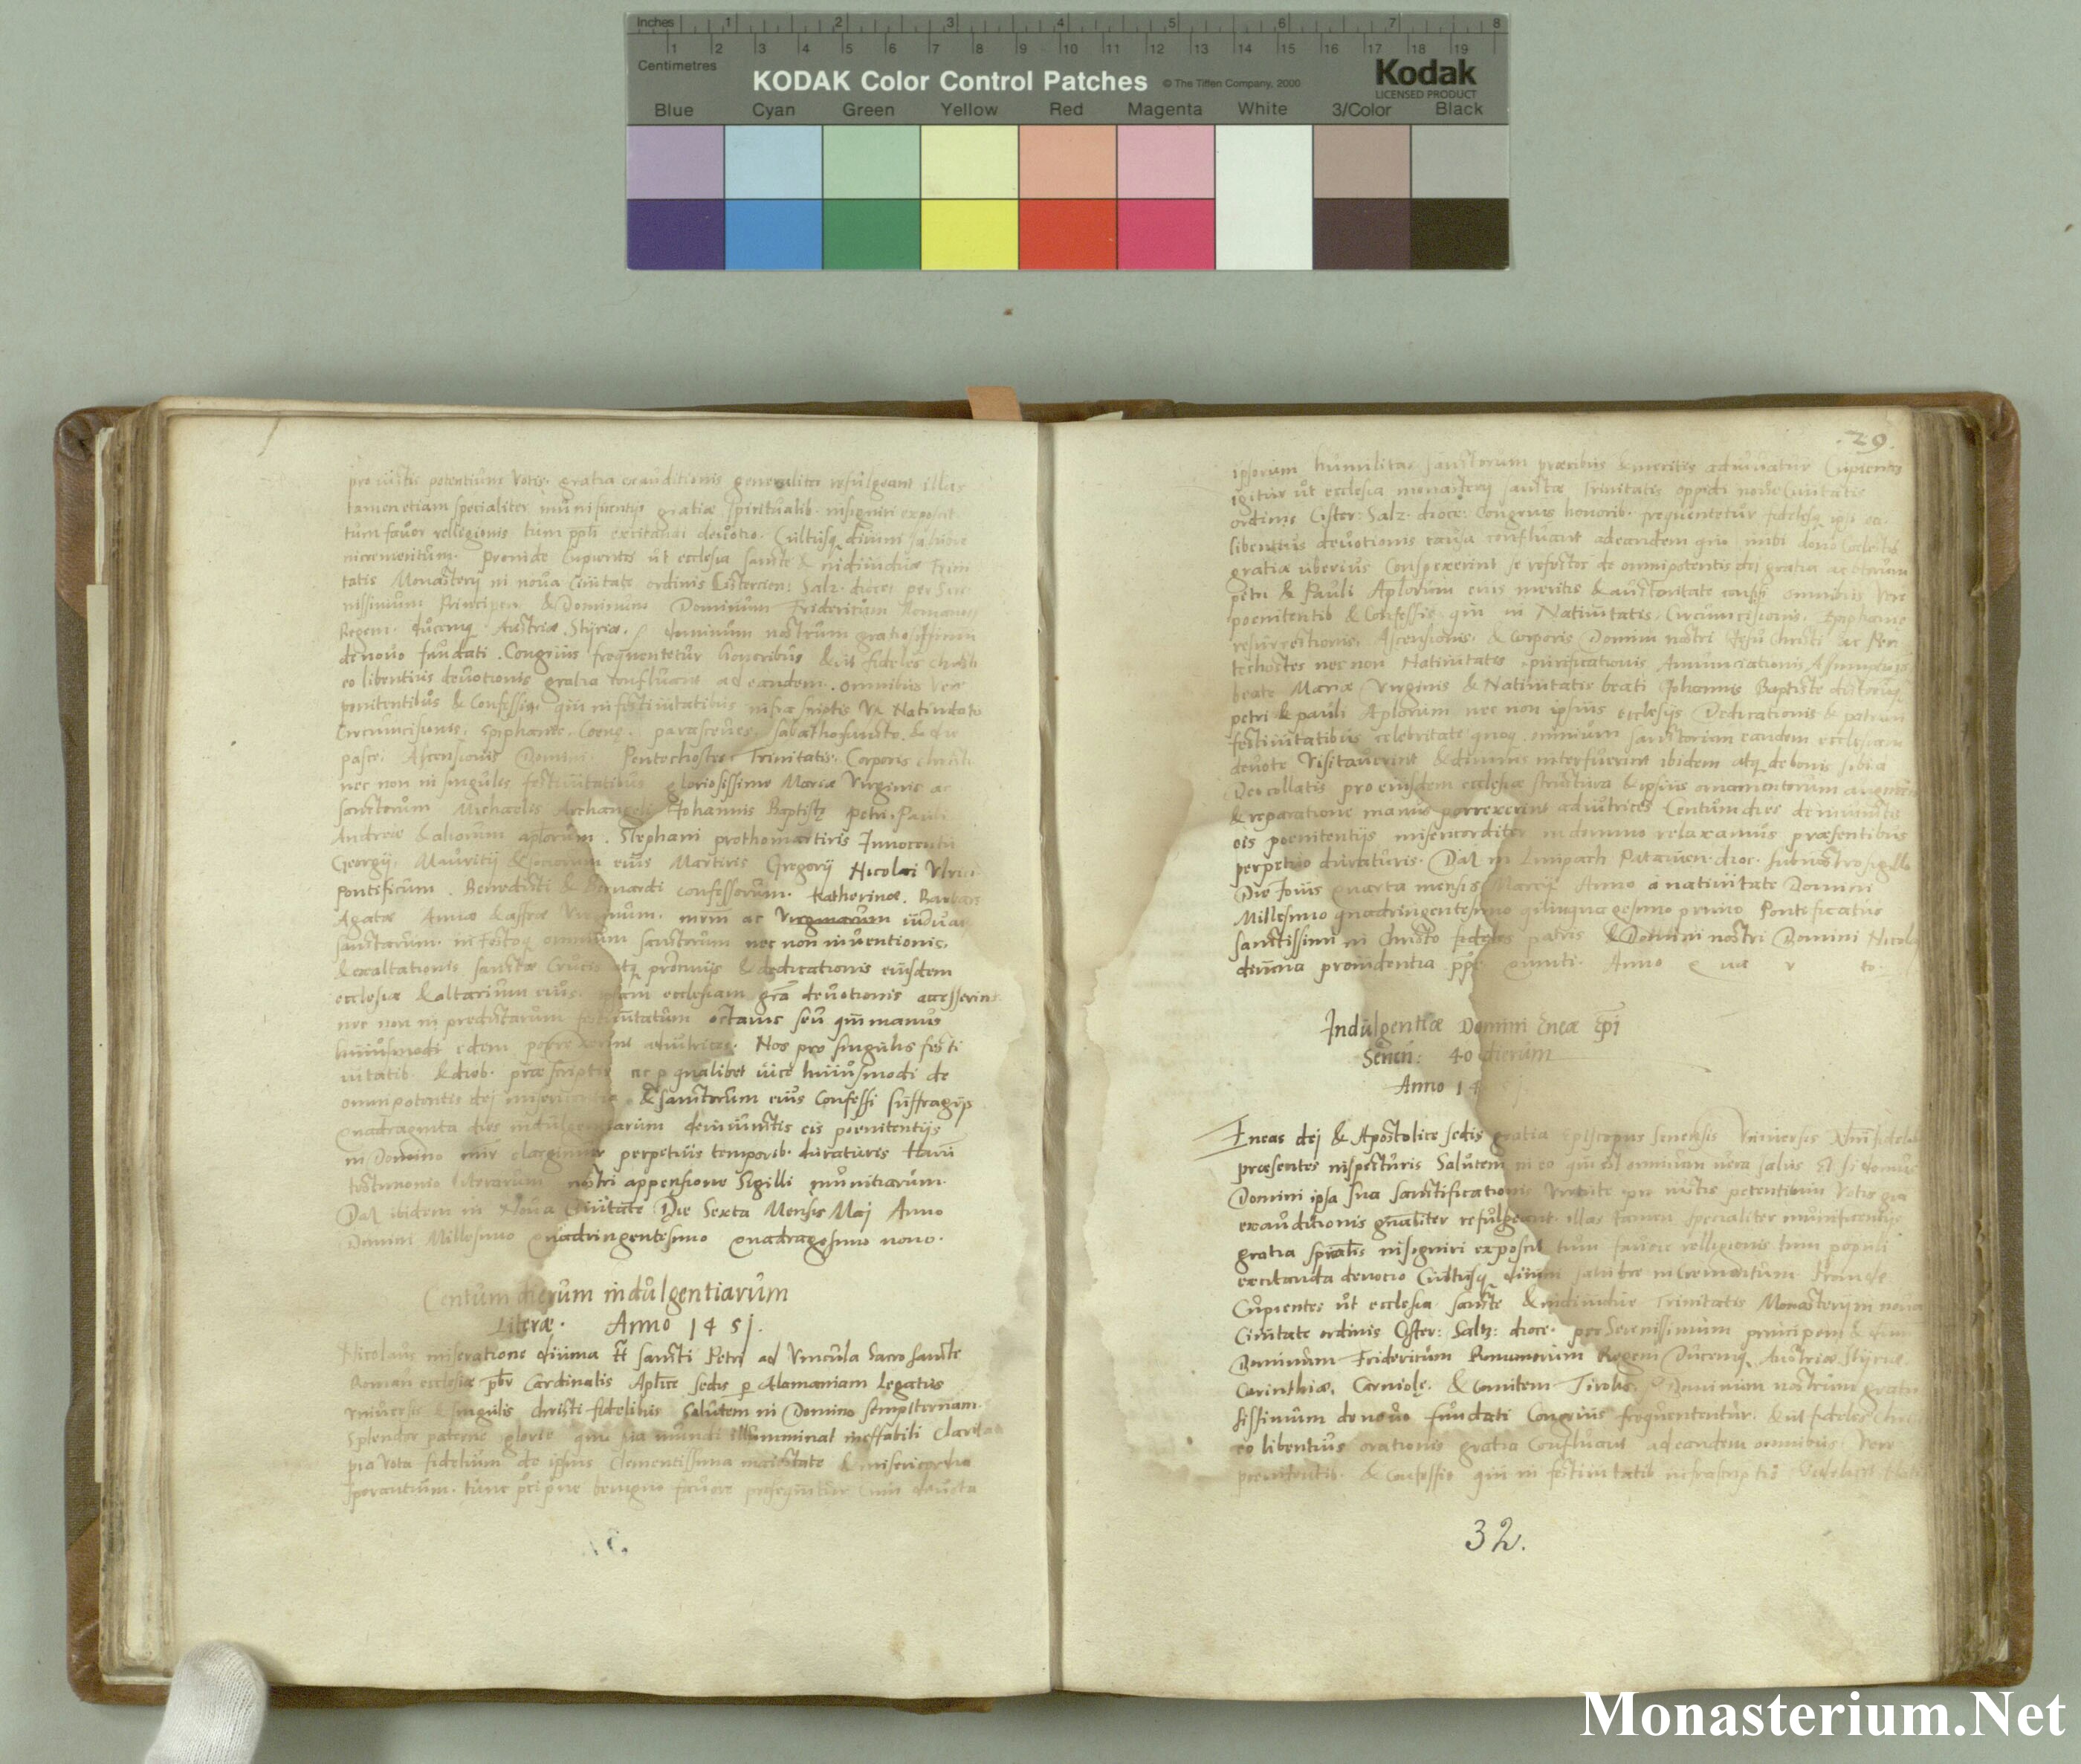 Inches 1 2 3 4 5 6 7 8
1 2 3 4 5 6 7 8 9 10 11 12 13 14 15 16 17 18 19
Centimetres
KODAK Color Control Patches © The Tiffen Company, 2000 Kodak
LICENSED PRODUCT
Blue Cyan Green Yellow Red Magenta White 3/Color Black
pro iustis potentium votis gratia exauditionis generaliter refulgeant illas
tamen etiam specialiter gratiæ spiritualib. insigniri exposcit
tum favor religionis tum exitandi devotio. Cultusq divini
incrementum. Proinde Cupientes ut ecclesia sancte & individuæ Trini
tatis Monastery in nova Civitate ordinis Cistercien: Salz. dioces per Sere
nissimum Principem & Dominum Dominum Fridericum Romanor
Regem ducemq Austriæ, Styriæ, dominum nostrum gratiosissimum
de novo fundati. Congruis frequentetur honoribus & ut fideles Christi
eo libentius devotionis gratia confluant ad eandem. omnibus vere
penitentibus & Confessis. qui in festivitatibus infra Nativitatis
Circumcisionis, Epiphaniæ, Coene, parasceues, sabatho sancto, & die
pasce, Ascensionis Domini. Pentechostes Trinitatis. Corporis Christi
nec non in singulis festivitatibus gloriosissime Mariæ Virginis ac
sanctorum Michaelis Archangeli Johannis Baptistę Petri, Pauli
Andreæ & aliorum aplorum. Stephani prothomartiris Innocentii
Georgij, Mauritij & sociorum eius Martiris Gregorij Nicolai Ulrici
Pontificum. Benedicti & Bernardi confessorum. Katherinæ. Barbaræ
Agatæ Annæ & affræ Virginum. ac
sanctarum. in festoq omnium sanctorum nec non inventionis,
& exaltationis sanctæ Crucis & dedicationis eiusdem
ecclesiæ & altarium eius. ecclesiam devotionis accesserint
nec non in predictarum festivitatum octavis seu qui manus
huiusmodi edem porrexerint adiutrices. Nos pro singulis festi
vitatib. & dieb. præscriptis ac p qualibet vice huiusmodi de
omnipotentis dej misericordia & sanctorum eius Confessi suffragijs
quadraginta dies indulgentiarum de iniunctis eis poenitentijs
in Domino elargimur perpetuis temporib. duraturis Harum
testimonio literarum nostri appensione Sigilli munitiarum.
Dat ibidem in Nova Civitate Die Sexta Mensis Maj Anno
Domini Millesimo quadringentesimo quadragesimo nono.
Centum dierum indulgentiarum
Literæ. Anno 1451.
Nicolaus miseratione divina tt sancti Petri ad Vincula Sacro sancte
Roman ecclesiæ pbr Cardinalis Aplice sedis p Alamaniam Legatus
vniversis & singulis christi fidelibus Salutem in Domino sempiternam.
Splendor paterne glorie qui sua mundi illumminat ineffabili claritate
pia vota fidelium de ipsius Clementissima maiestate & misericordia
sperantium. tunc benigno favore prosequitur Cum devota
29.
ipsorum humilitas sanctorum præcibus & meritis adiuvatur Cupientes
igitur ut ecclesia monastery sanctæ Trinitatis oppidi novæ Civitatis
ordinis Cister: Salz. dioce: Congruis honorib. frequentetur fidelesq ipsi eo
libentius devotionis causa confluant ad eandem quo
gratiæ uberius Conspexerint se refectos de omnipotentis dej gratia ac
petri & Pauli Aplorum eius meritis & auctoritate omnibus vere
poenitentib & Confessis qui in Nativitatis, Circumcisionis, Epiphanie
resurrectionis, Ascensionis, & corporis Domini nostri Jesu Christi ac Pen
techostes nec non Nativitatis purificationis Annunciationis Assumptionis
beate Mariæ Virginis & Nativitatis beati Johannis Baptiste
petri & pauli Aplorum nec non ipsius ecclesijs Dedicationis & patroni
festivitatibus celebritate quoq omnium sanctorum eandem ecclesiam
devote Visitaverint & divinis interfuerint ibidem atq de bonis sibi a
Deo collatis pro eiusdem ecclesiæ structura & ipsius ornamentorum
& reparatione manus porrexerint adiutrices Centum dies de iniunctis
eis poenitentijs misericorditer in domino relaxamus præsentibus
perpetuo duraturis. Dat in Patavien. dioc. sub nostro sigillo
Die Jovis quarta mensis Marcij Anno a nativitate Domini
Millesimo quadringentesimo quinquagesimo primo Pontificatus
sanctissimi in Christo patris & Domini nostri Domini Nicolai
divina providentia pape quinti. Anno
Indulgentiæ Domini Eneæ Epi
Senen: 40 dierum
Anno 14
Eneas dej & Apostolice sedis gratia Episcopus senensis Vniversis
præsentes inspecturis Salutem in eo qui est omnium vera salus Et si domus
Domini ipsa sua sanctificationis virtute pro iustis petentium Votis
exauditionis gnaliter refulgeant illas tamen specialiter munificentijs
gratia insigniri exposcit tum favore religionis tum populi
excitanda devocio Cultusq divini salubre incrementum Proinde
Cupientes ut ecclesia sancte & individue Trinitatis Monastery in nova
Civitate ordinis Cister: Saltz: dioce. per Serenissimum principem &
Dominum Fridericum Romanorum Regem Ducemq Austriæ Styriæ
Carinthiæ, Carniolę. & Comitem Tirolis, Dominum nostrum gratio
sissimum de novo fundati Congruis frequententur. & ut fideles
eo libentius orationis gratia Confluant ad eandem omnibus Vere
poenitentib. & Confessis qui in festivitatib infrascriptis
32.
Monasterium.Net